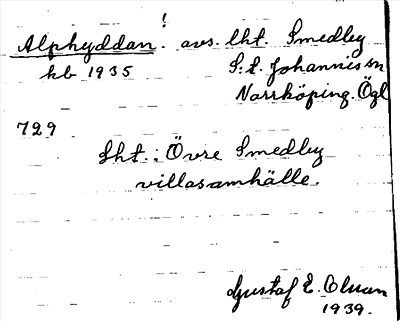 !
Alphyddan. avs. lht. Smedby
kb 1935 S:t. Johannis sn
Norrköping. Ögl
729
Lht.: Övre Smedby
villasamhälle.
Gustaf E. Olsson
1939.